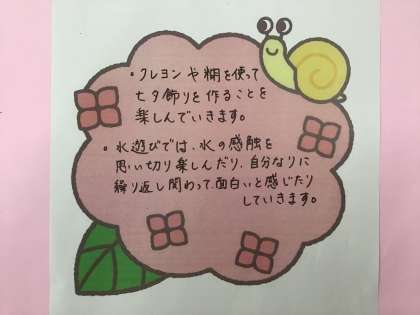 ・クレヨンや糊を使って
七夕飾りを作ることを
楽しんでいきます。
・水遊びでは、水の感触を
思い切り楽しんだり、自分なりに
繰り返し関わって、面白いと感じたり
していきます。